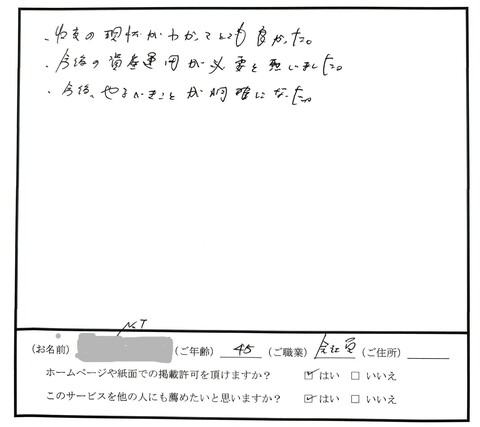 ・収支の現状がわかってとても良かった。
・今後の資産運用が必要と思いました。
・今後、やるべきことが明確になった。
N.T
(お名前) (ご年齢) 45 (ご職業) 会社員 (ご住所)
ホームページや紙面での掲載許可を頂けますか? ☑はい □いいえ
このサービスを他の人にも薦めたいと思いますか? ☑はい □いいえ